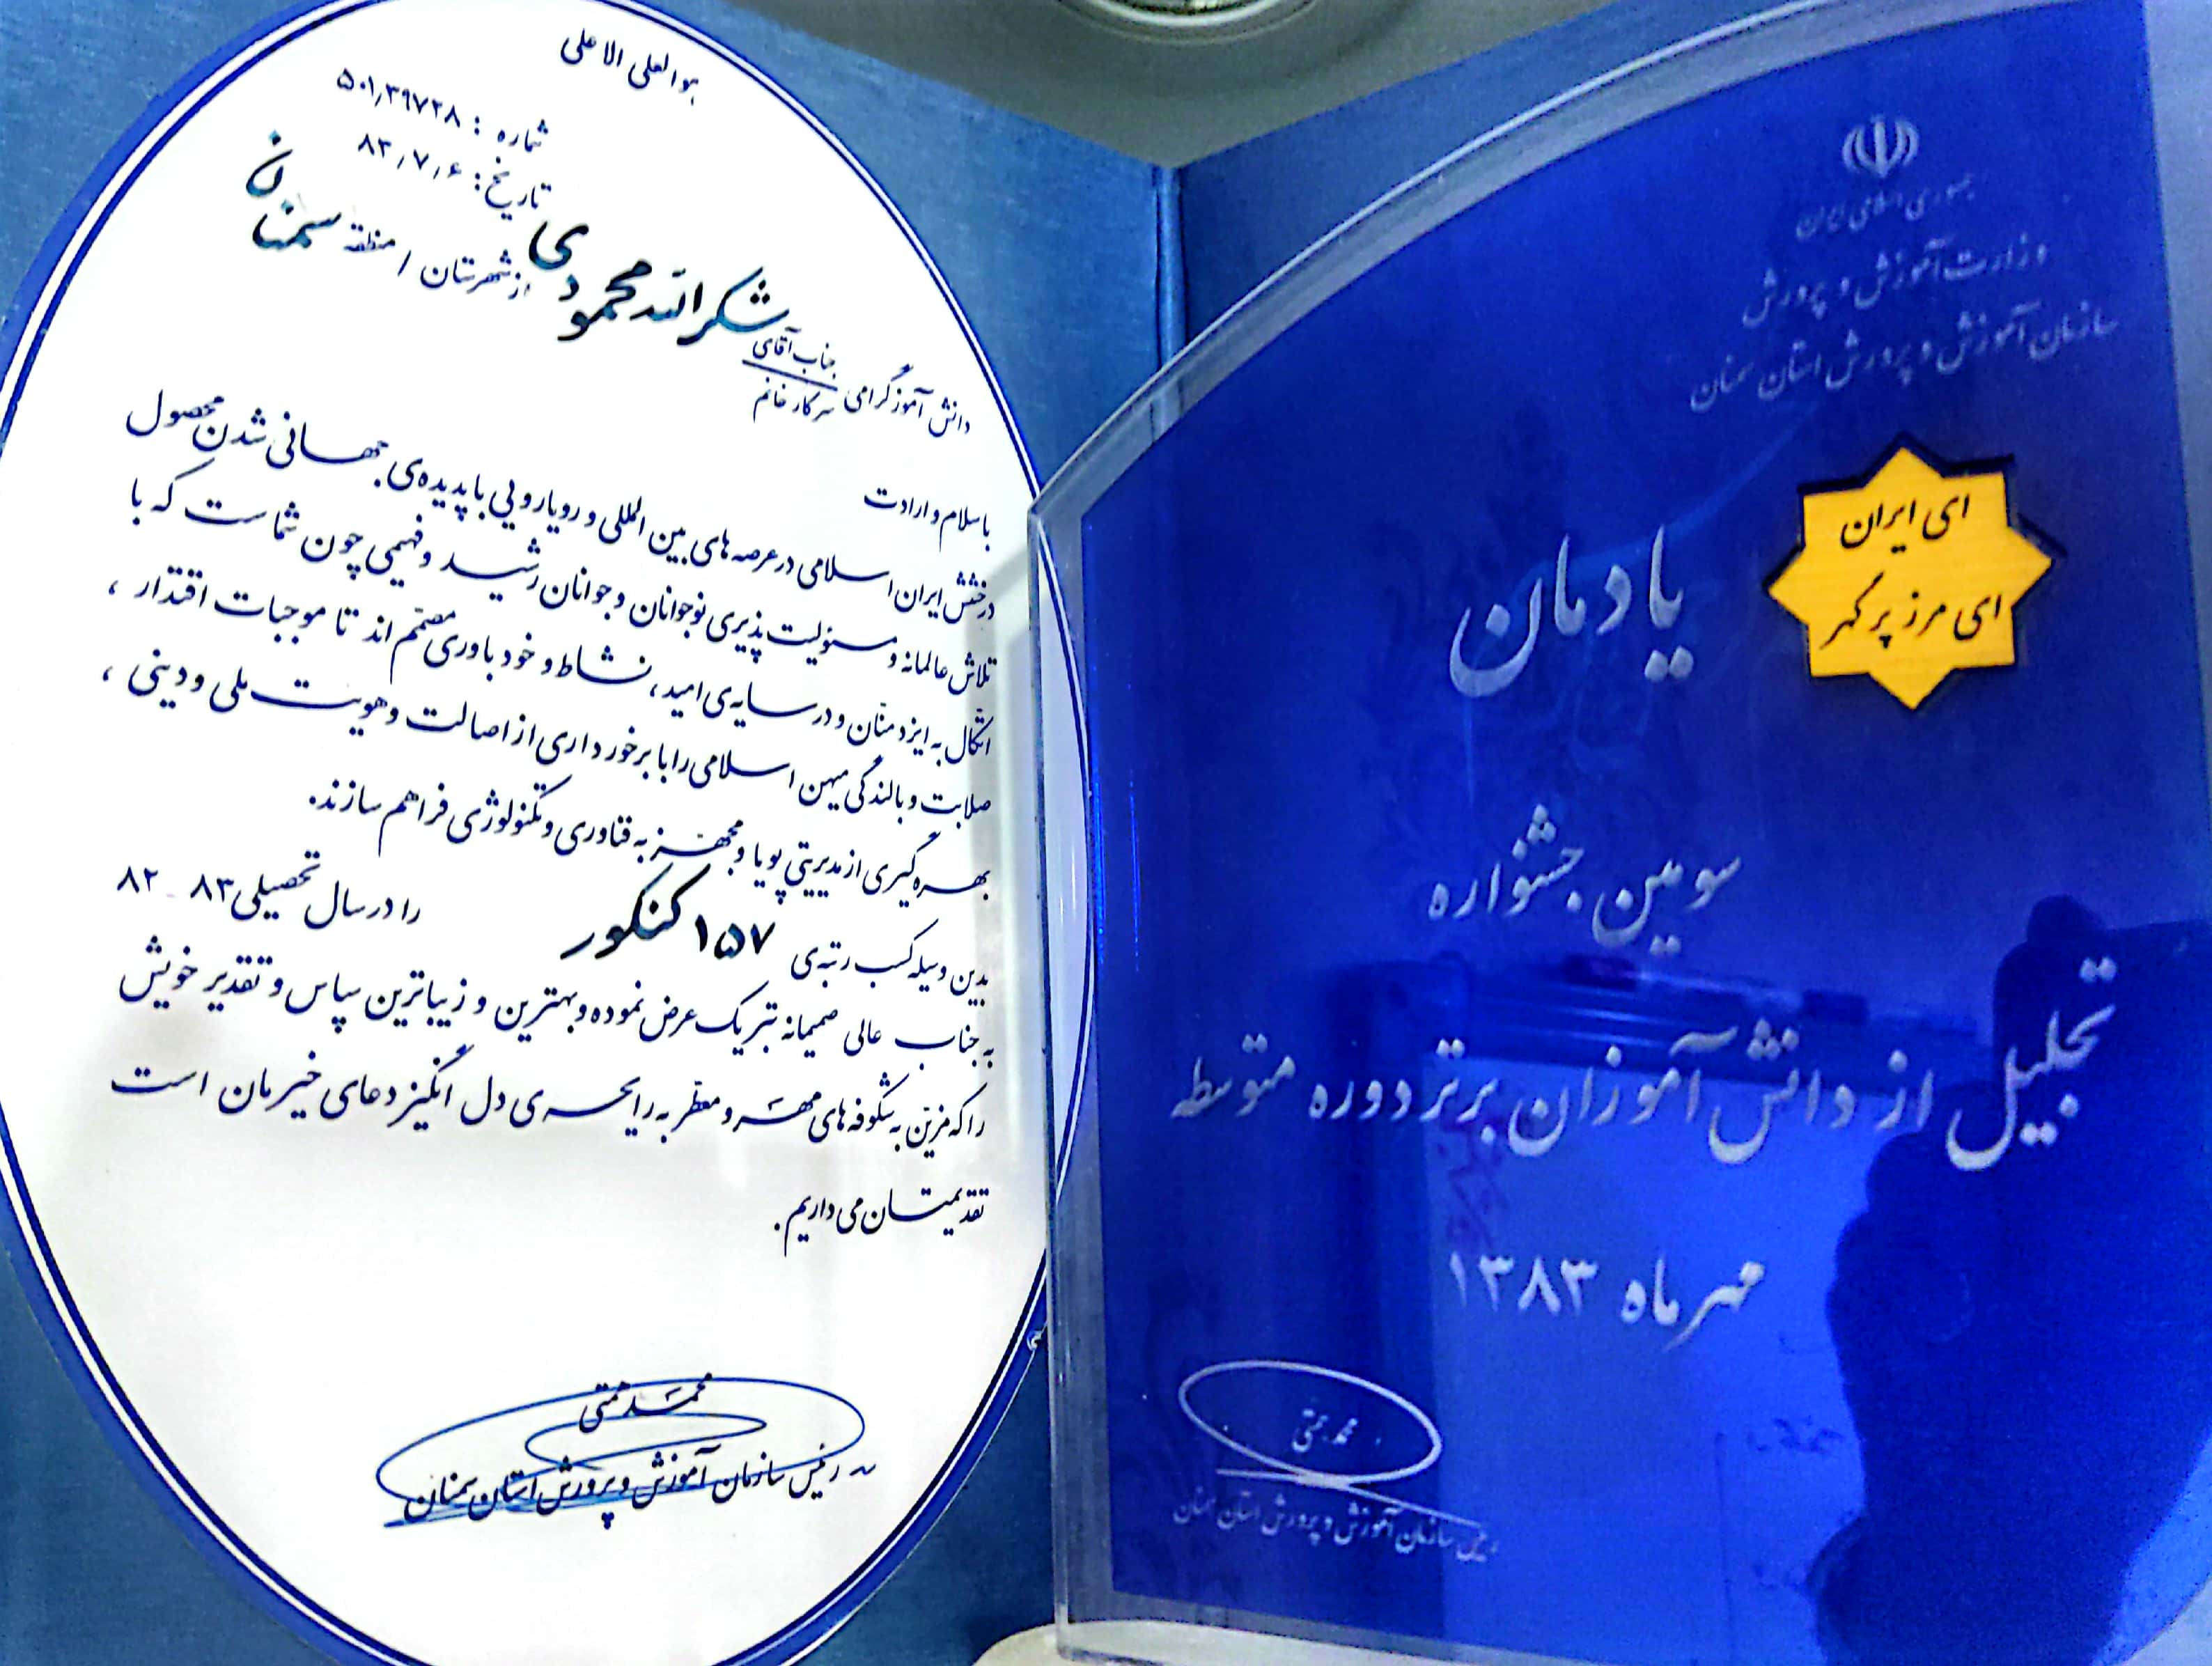 هوالعلی الاعلی
شماره : ۵۰۱٫۳۹۷۳۸
تاریخ : ۸۳٫۷٫۶
دانش آموز گرامی جناب آقای شکرالله محمودی از شهرستان / منطقه سمنان
سرکار خانم
باسلام و ارادت
درخشش ایران اسلامی در عرصه های بین المللی و رویارویی با پدیده‌ی جهانی شدن محصول
تلاش عالمانه و مسئولیت پذیری نوجوانان و جوانان رشید و فهیمی چون شماست که با
اتکال به ایزد منان و در سایه‌ی امید، نشاط و خودباوری مصمم اند تا موجبات اقتدار ،
صلابت و بالندگی میهن اسلامی را با برخورداری از اصالت و هویت ملی و دینی ،
بهره گیری از مدیریتی پویا و مجهز به فناوری و تکنولوژی فراهم سازند.
بدین وسیله کسب رتبه‌ی ۱۵۷ کنکور را در سال تحصیلی ۸۳ - ۸۲
به جناب عالی صمیمانه تبریک عرض نموده و بهترین و زیباترین سپاس و تقدیر خویش
را که مزین به شکوفه های مهر و معطر به رایحه‌ی دل انگیز دعای خیرمان است
تقدیمتان می داریم .
محمد همتی
رئیس سازمان آموزش و پرورش استان سمنان
جمهوری اسلامی ایران
وزارت آموزش و پرورش
سازمان آموزش و پرورش استان سمنان
ای ایران
ای مرز پر گهر
یادمان
سومین جشنواره
تجلیل از دانش آموزان برتر دوره متوسطه
مهر ماه ۱۳۸۳
محمد همتی
رئیس سازمان آموزش و پرورش استان سمنان